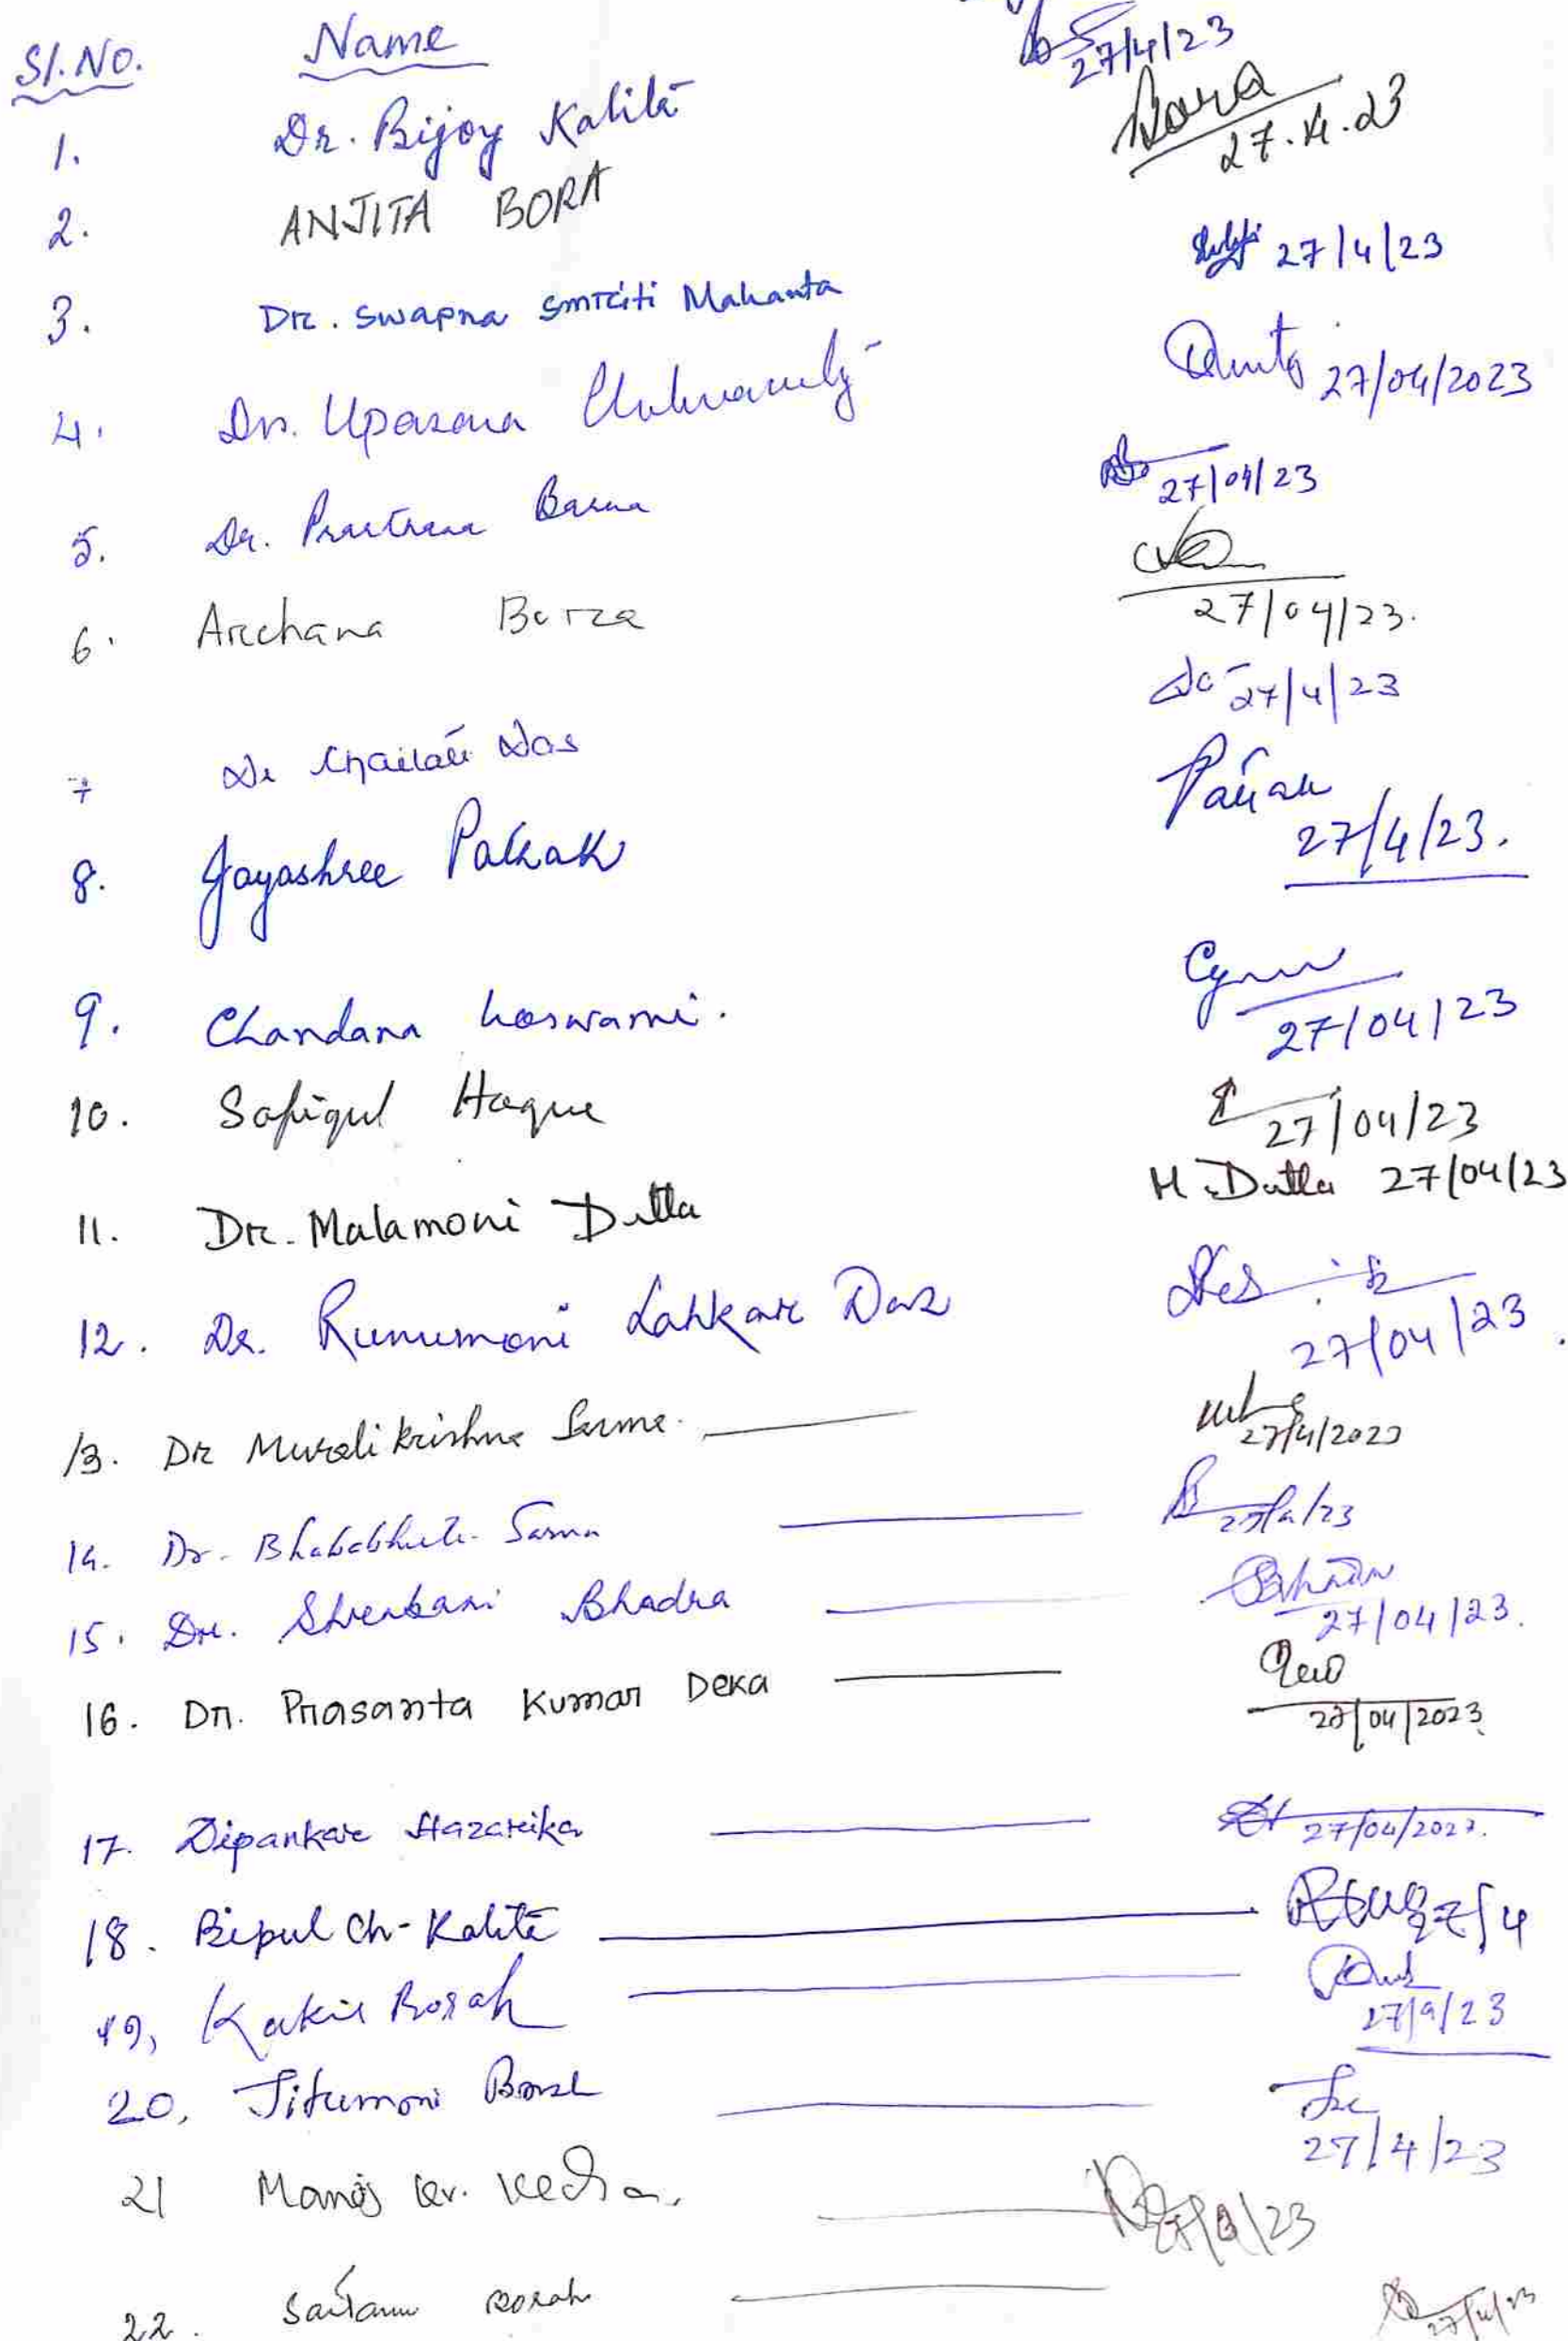 Sl. No. Name
27/4/23
1. Dr. Bijoy Kalita
Bora
27.4.23
2. ANJITA BORA
27/4/23
3. Dr. Swapna Smriti Mahanta
27/04/2023
4. Dr. Upasana
27/04/23
5. Dr. Barua
27/04/23.
6. Archana Bora
27/4/23
7 Dr Chaitali Das
Pathak
27/4/23.
8. Jayashree Pathak
27/04/23
9. Chandana Goswami.
10. Safiqul Haque
27/04/23
11. Dr. Malamoni Dutta
M. Dutta 27/04/23
12. Dr. Runumoni Lahkar Das
27/04/23
13. Dr Muralikrishna Sarma
27/4/2023
14. Dr. Bhababhuti Sarma
27/4/23
15. Dr. Shrabani Bhadra
27/04/23.
16. Dr. Prasanta Kumar Deka
27/04/2023
17. Dipankar Hazarika
27/04/2023.
18. Bipul Ch. Kalita
27/4
19, Borah
27/4/23
20, Jitumoni
27/4/23
21 Manoj Kr.
22. Borah